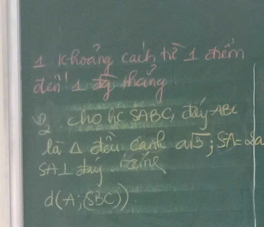 1 khoảng cách từ 1 điểm
đến 1 đg thẳng
Cho h/c SABC, đáy ABC
là Δ đều cạnh a√3; SA=2a
SA⊥đáy
d(A;(SBC))